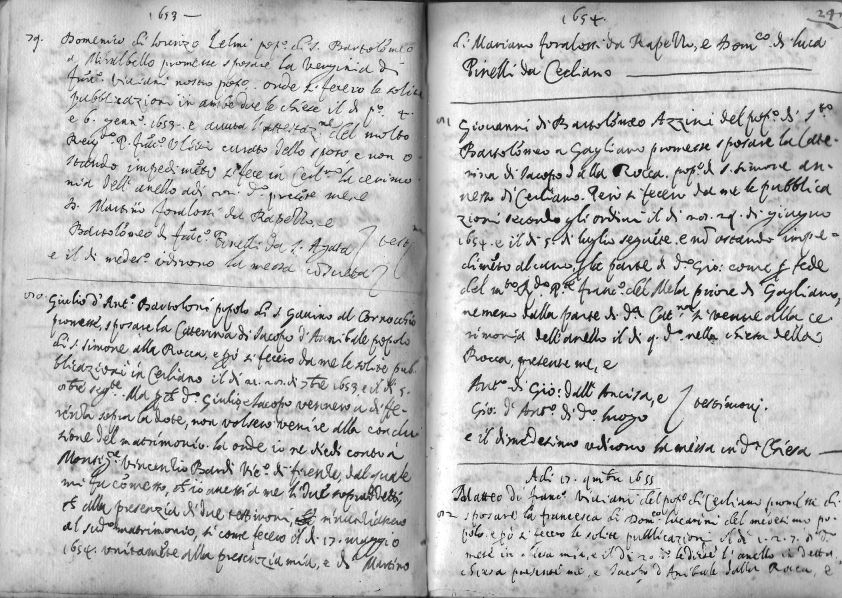 1653
29.
Domenico di Lorenzo Lelmi pop.º di S. Bartolomeo
a Mirabello promesse sposare la Verginia di
fran.º Viviani nostro popo. onde si fecero le solite
pubblicazioni in ambe due le chiese il dì p.º 4.
e 6. genn.º 1653. e avuta l'attestaz.ne del molto
Rev.do P. fran.º curato dello sposo, e non o-
stando impedim.to si fece in Cerl.no la cerimo-
nia dell'anello adi d.º presente me e
di Martino da Rapello, e
Bartolomeo di fran.º Pinelli da S. Agata testi
e il dì medes.º udirono la messa
Giulio d'Ant.º Bartoloni popolo di S. Gavino al Cornocchio
promesse sposare la Catterina di Iacopo d'Annibale popolo
di S. Simone alla Rocca, e si fecero da me le solite pub-
blicazioni in Cerliano il dì 21. 7bre 1653, e il dì 5.
8bre seg.te. Ma d.º Giulio, e Iacopo vennero a diffe-
renza sopra la dote, non volsero venire alla conclu-
sione del matrimonio. la onde io ne diedi conto a
Monsig.re Vincentio Bardi Vic.º di firenze, dal quale
mi fu commesso, che io avessi a me li due sopradetti,
et alla presenza di due testimoni,
al sud.º matrimonio, si come fecero il dì 17. maggio
1654. unitamente alla presenzia mia, e di Martino
1654.
29.
di Mariano da Rapello, e Dom.co di luca
Pinelli da Cerliano
Giovanni di Bartolomeo Azzini del pop.º di S.to
Bartolomeo a Gagliano promesse sposare la Cate-
rina di Iacopo dalla Rocca. pop.º di S. Simone an-
nesso di Cerliano. si fecero da me le pubblica-
zioni secondo gli ordini il dì 29. di giugno
1654. e il dì 5. di luglio seguente. e non ostando impe-
dimento alcuno, per la parte di d.º Gio: come per fede
del m.to R.do P.re fran.º del Mela priore di Gagliano,
ne meno dalla parte di d.a Cat.na si venne alla ce-
rimonia dell'anello il dì 9. d.º nella chiesa della
Rocca, presente me, e
Ant.º di Gio: dall'Ancisa, e
Gio: d'Ant.º di d.º luogo testimoni.
e il dì medesimo udirono la messa in d.a Chiesa
Adi 17. 9mbre 1655
Matteo di franc.º Viviani del pop.º di Cerliano promesse di
sposare la francesca di Dom.co Lucarini del medesimo po-
polo. e si fecero le solite pubblicazioni il dì 1. 2. 7. d.º
mese in chiesa mia, e il dì 20. le diede l'anello in detta
chiesa presente me, e Iacopo d'Anibale dalla Rocca, e